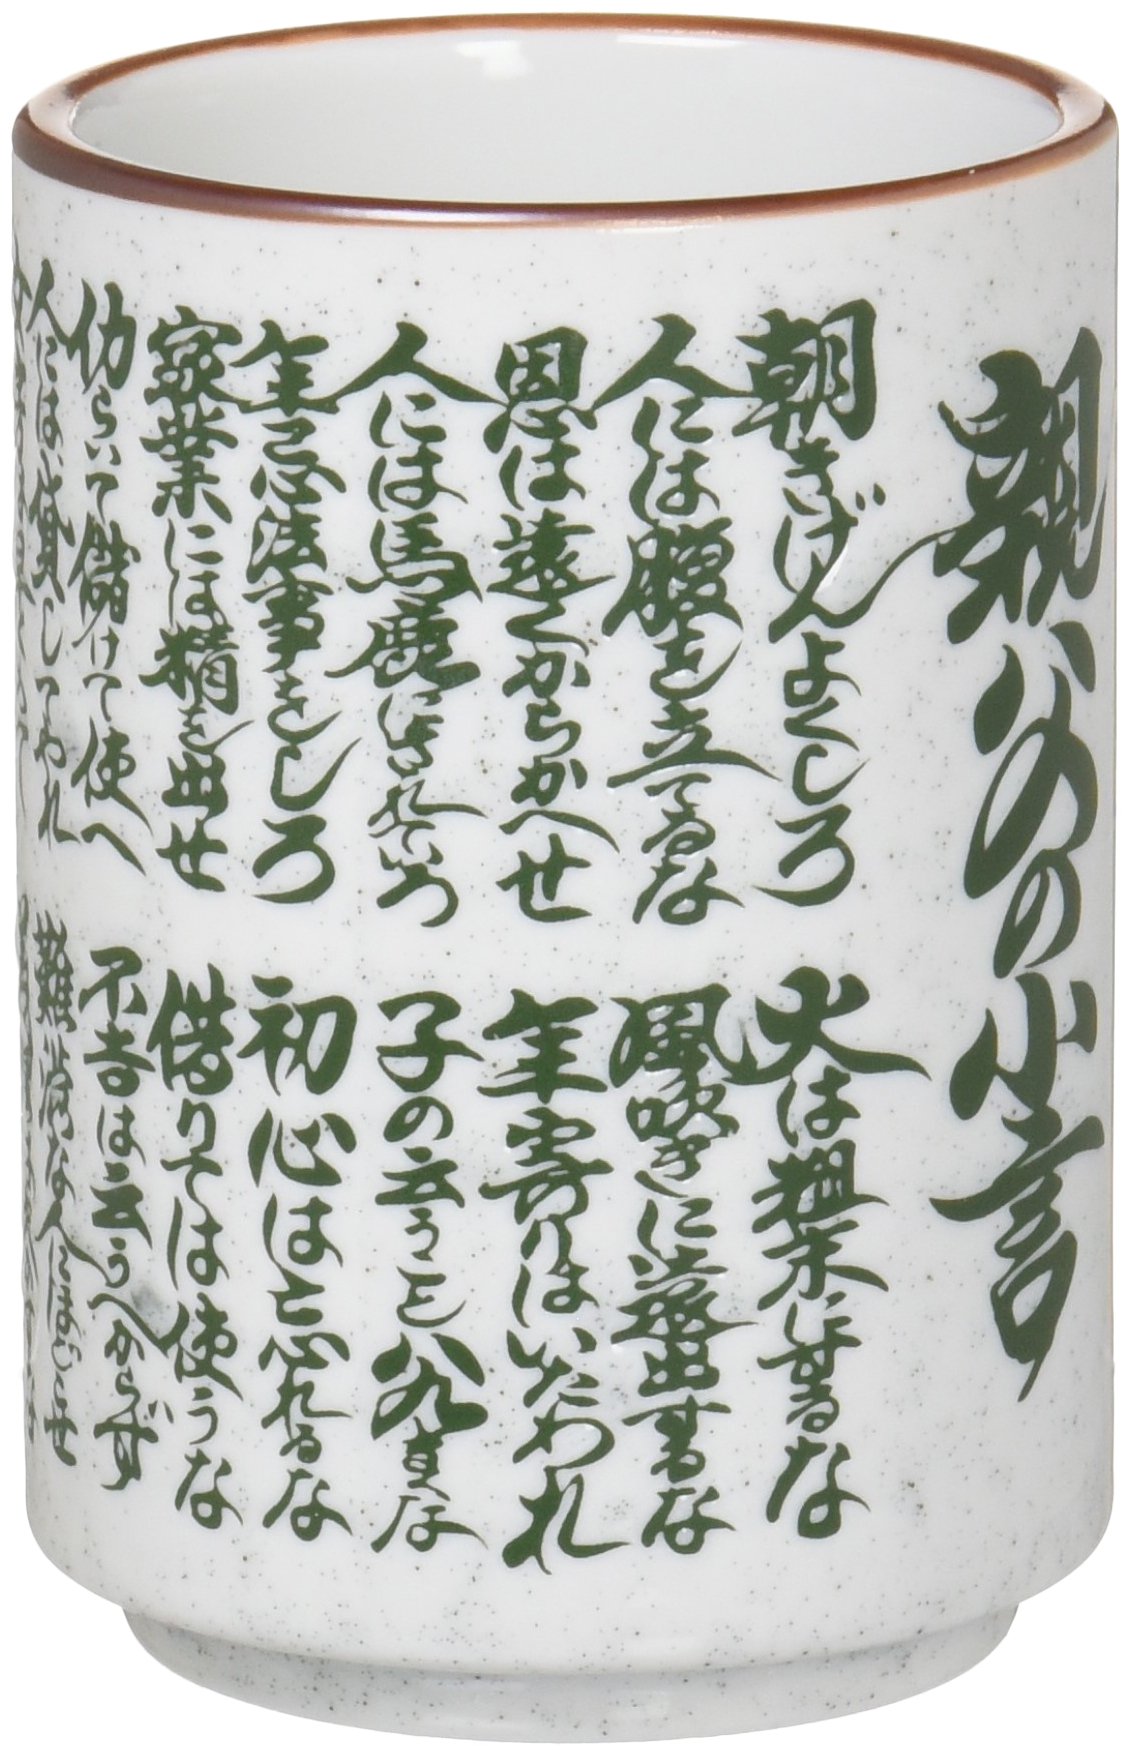 親父の小言
朝きげんよくしろ
人には腹を立てるな
恩は遠くからかへせ
人には馬鹿にされていろ
年忌法事をしろ
家業には精を出せ
仂らいて儲けて使へ
人には貸してやれ
火は粗末にするな
風吹きに遠出するな
年寄りはいたわれ
子の云うこと八九きくな
初心は忘れるな
借りては使うな
不吉は云うべからず
難渋な人にほどこせ